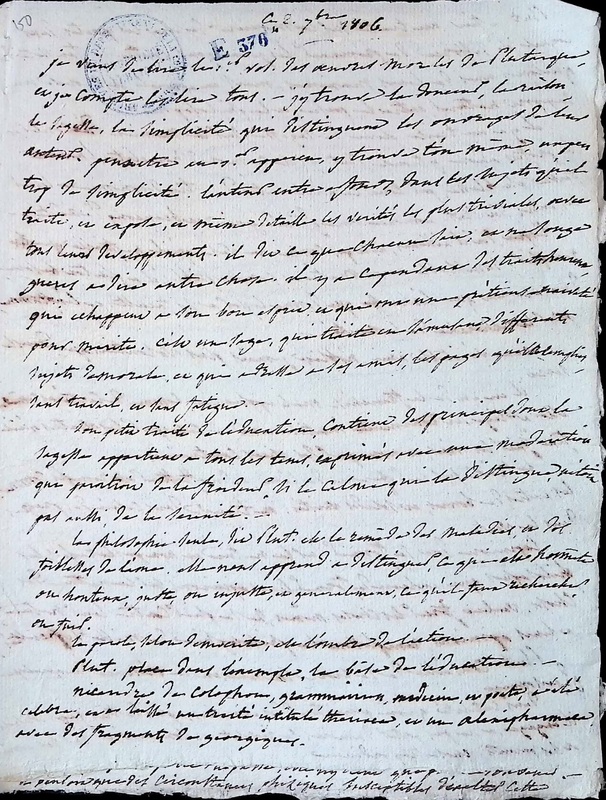 150
ce 2. 7bre 1806.
E 376
je viens de lire le 1er vol. des œuvres morales de Plutarque,
et je compte les lire tous. — j'y trouve la douceur, la raison
la sagesse, la simplicité qui distinguent les ouvrages de leur
auteur. peut être au 1er apperçu, y trouve t'on même un peu
trop de simplicité. l'auteur entre a fonds, dans les sujets qu'il
traite, et expose, et même détaille les vérités les plus triviales, avec
tous leurs developpements. il dit ce que chacun sait, et ne songe
gueres a dire autre chose. il y a cependant des traits heureux
qui echappent a son bon esprit, et qui ont une précieuse naïveté
pour mérite. c'est un sage, qui traite en s'amusant differents
sujets de morale, et qui adresse a ses amis, les pages qu'il a remplies,
sans travail, et sans fatigue. —
son petit traité de l'éducation, contient des principes dont la
sagesse appartient a tous les tems, exprimés avec une moderation
qui paraitrait de la froideur, si le calme qui la distingue n'étoit
pas aussi de la serenité. —
la philosophie seule, dit Plut. est le remède des maladies, et des
foiblesses de l'ame. elle nous apprend a distinguer ce qui est honneste
ou honteux, juste, ou injuste, et generalement, ce qu'il faut rechercher
ou fuir.
la parole, selon democrite, est l'ombre de l'action. —
Plut. place dans l'exemple, la base de l'éducation. —
nicandre de Colophon, grammairien, medecin, et poete, a été
celebre, et a laissé un traité intitulé theriaca, et un alexipharmaca
avec des fragments de georgiques.
que des circonstances physiques susceptibles d'exalter cette